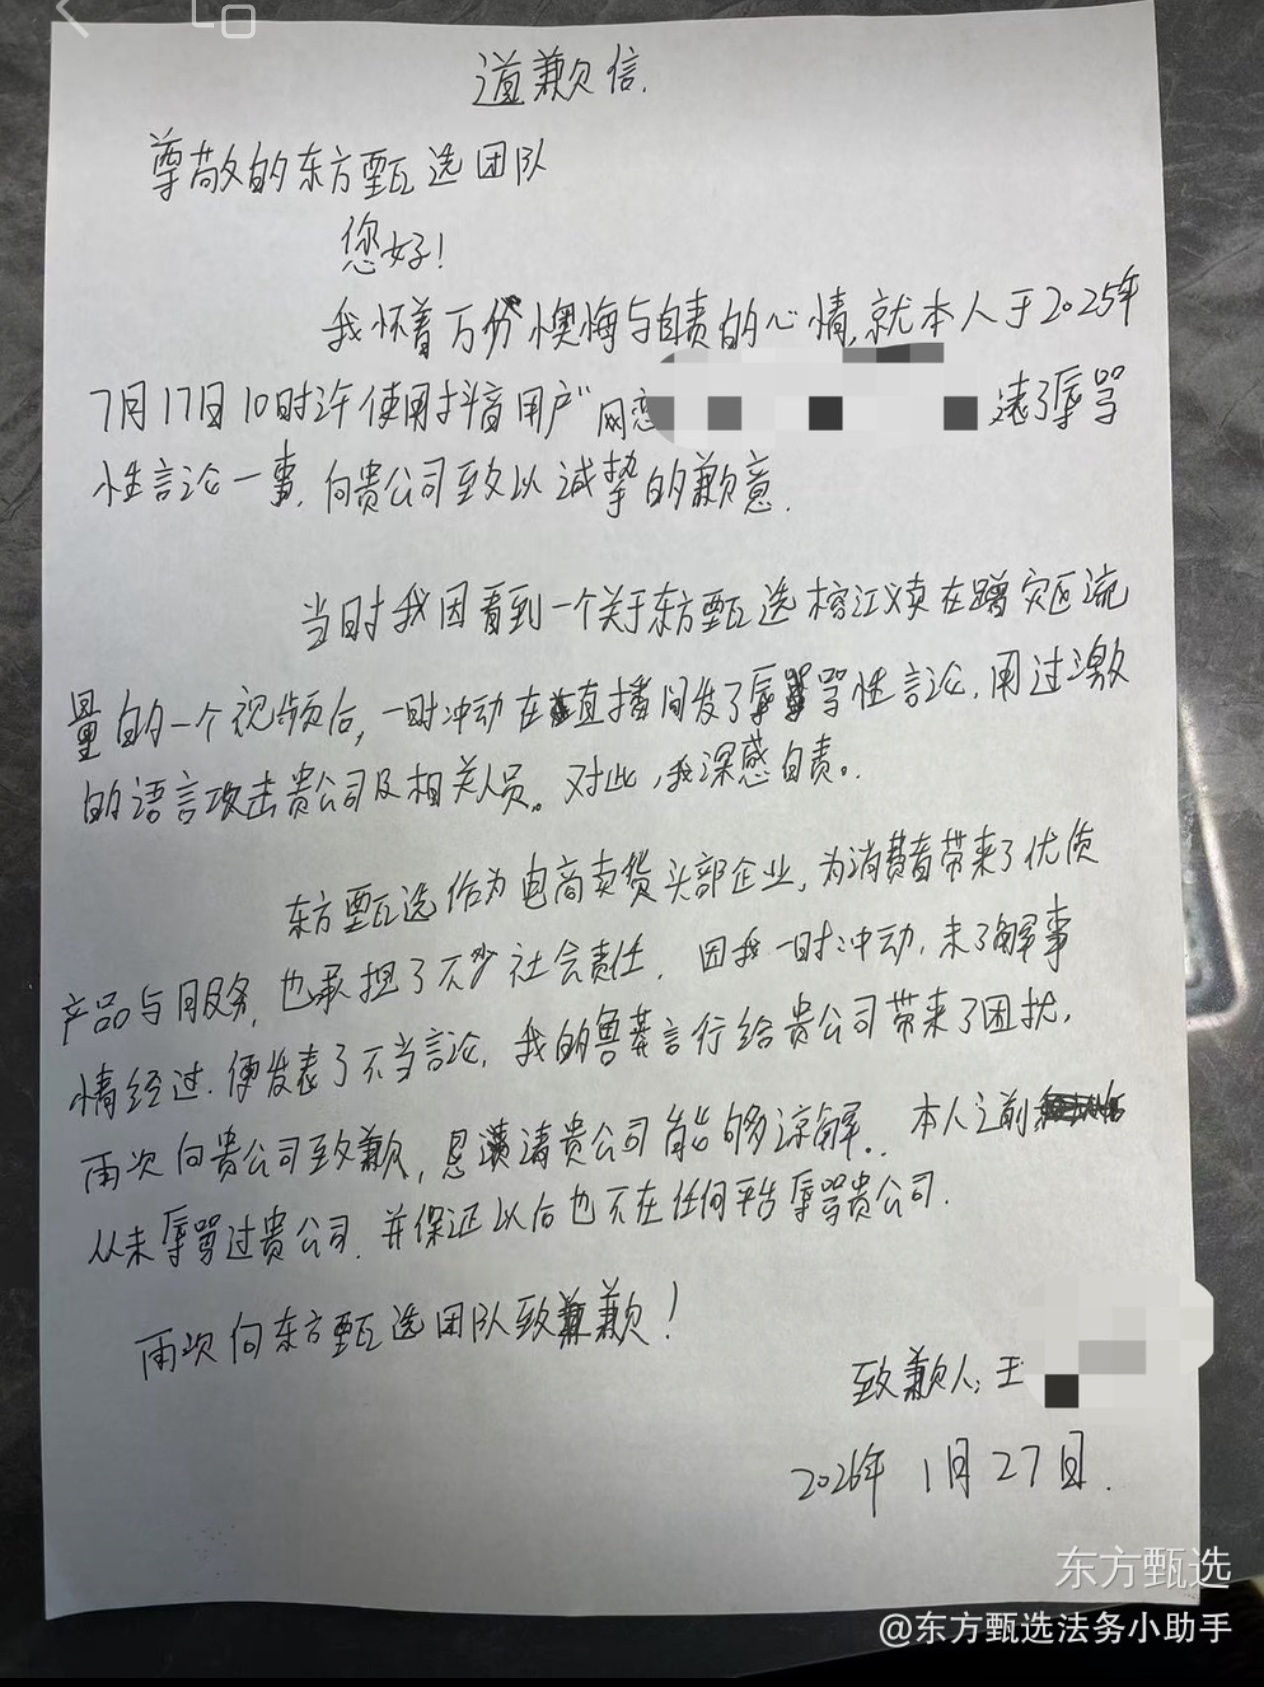 道歉信.
尊敬的东方甄选团队
您好!
我怀着万份懊悔与自责的心情,就本人于2025年
7月17日10时许使用抖音用户“网恋 表了辱骂
性言论一事,向贵公司致以诚挚的歉意.
当时我因看到一个关于东方甄选榕江义卖在蹭灾区流
量的一个视频后,一时冲动在直播间发了辱骂性言论,用过激
的语言攻击贵公司及相关人员。对此,我深感自责。
东方甄选作为电商卖货头部企业,为消费者带来了优质
产品与服务,也承担了不少社会责任.因我一时冲动,未了解事
情经过.便发表了不当言论,我的鲁莽言行给贵公司带来了困扰,
再次向贵公司致歉,恳请贵公司能够谅解.本人之前
从未辱骂过贵公司.并保证以后也不在任何平台辱骂贵公司.
再次向东方甄选团队致歉!
致歉人:王
2026年1月27日.
东方甄选
@东方甄选法务小助手